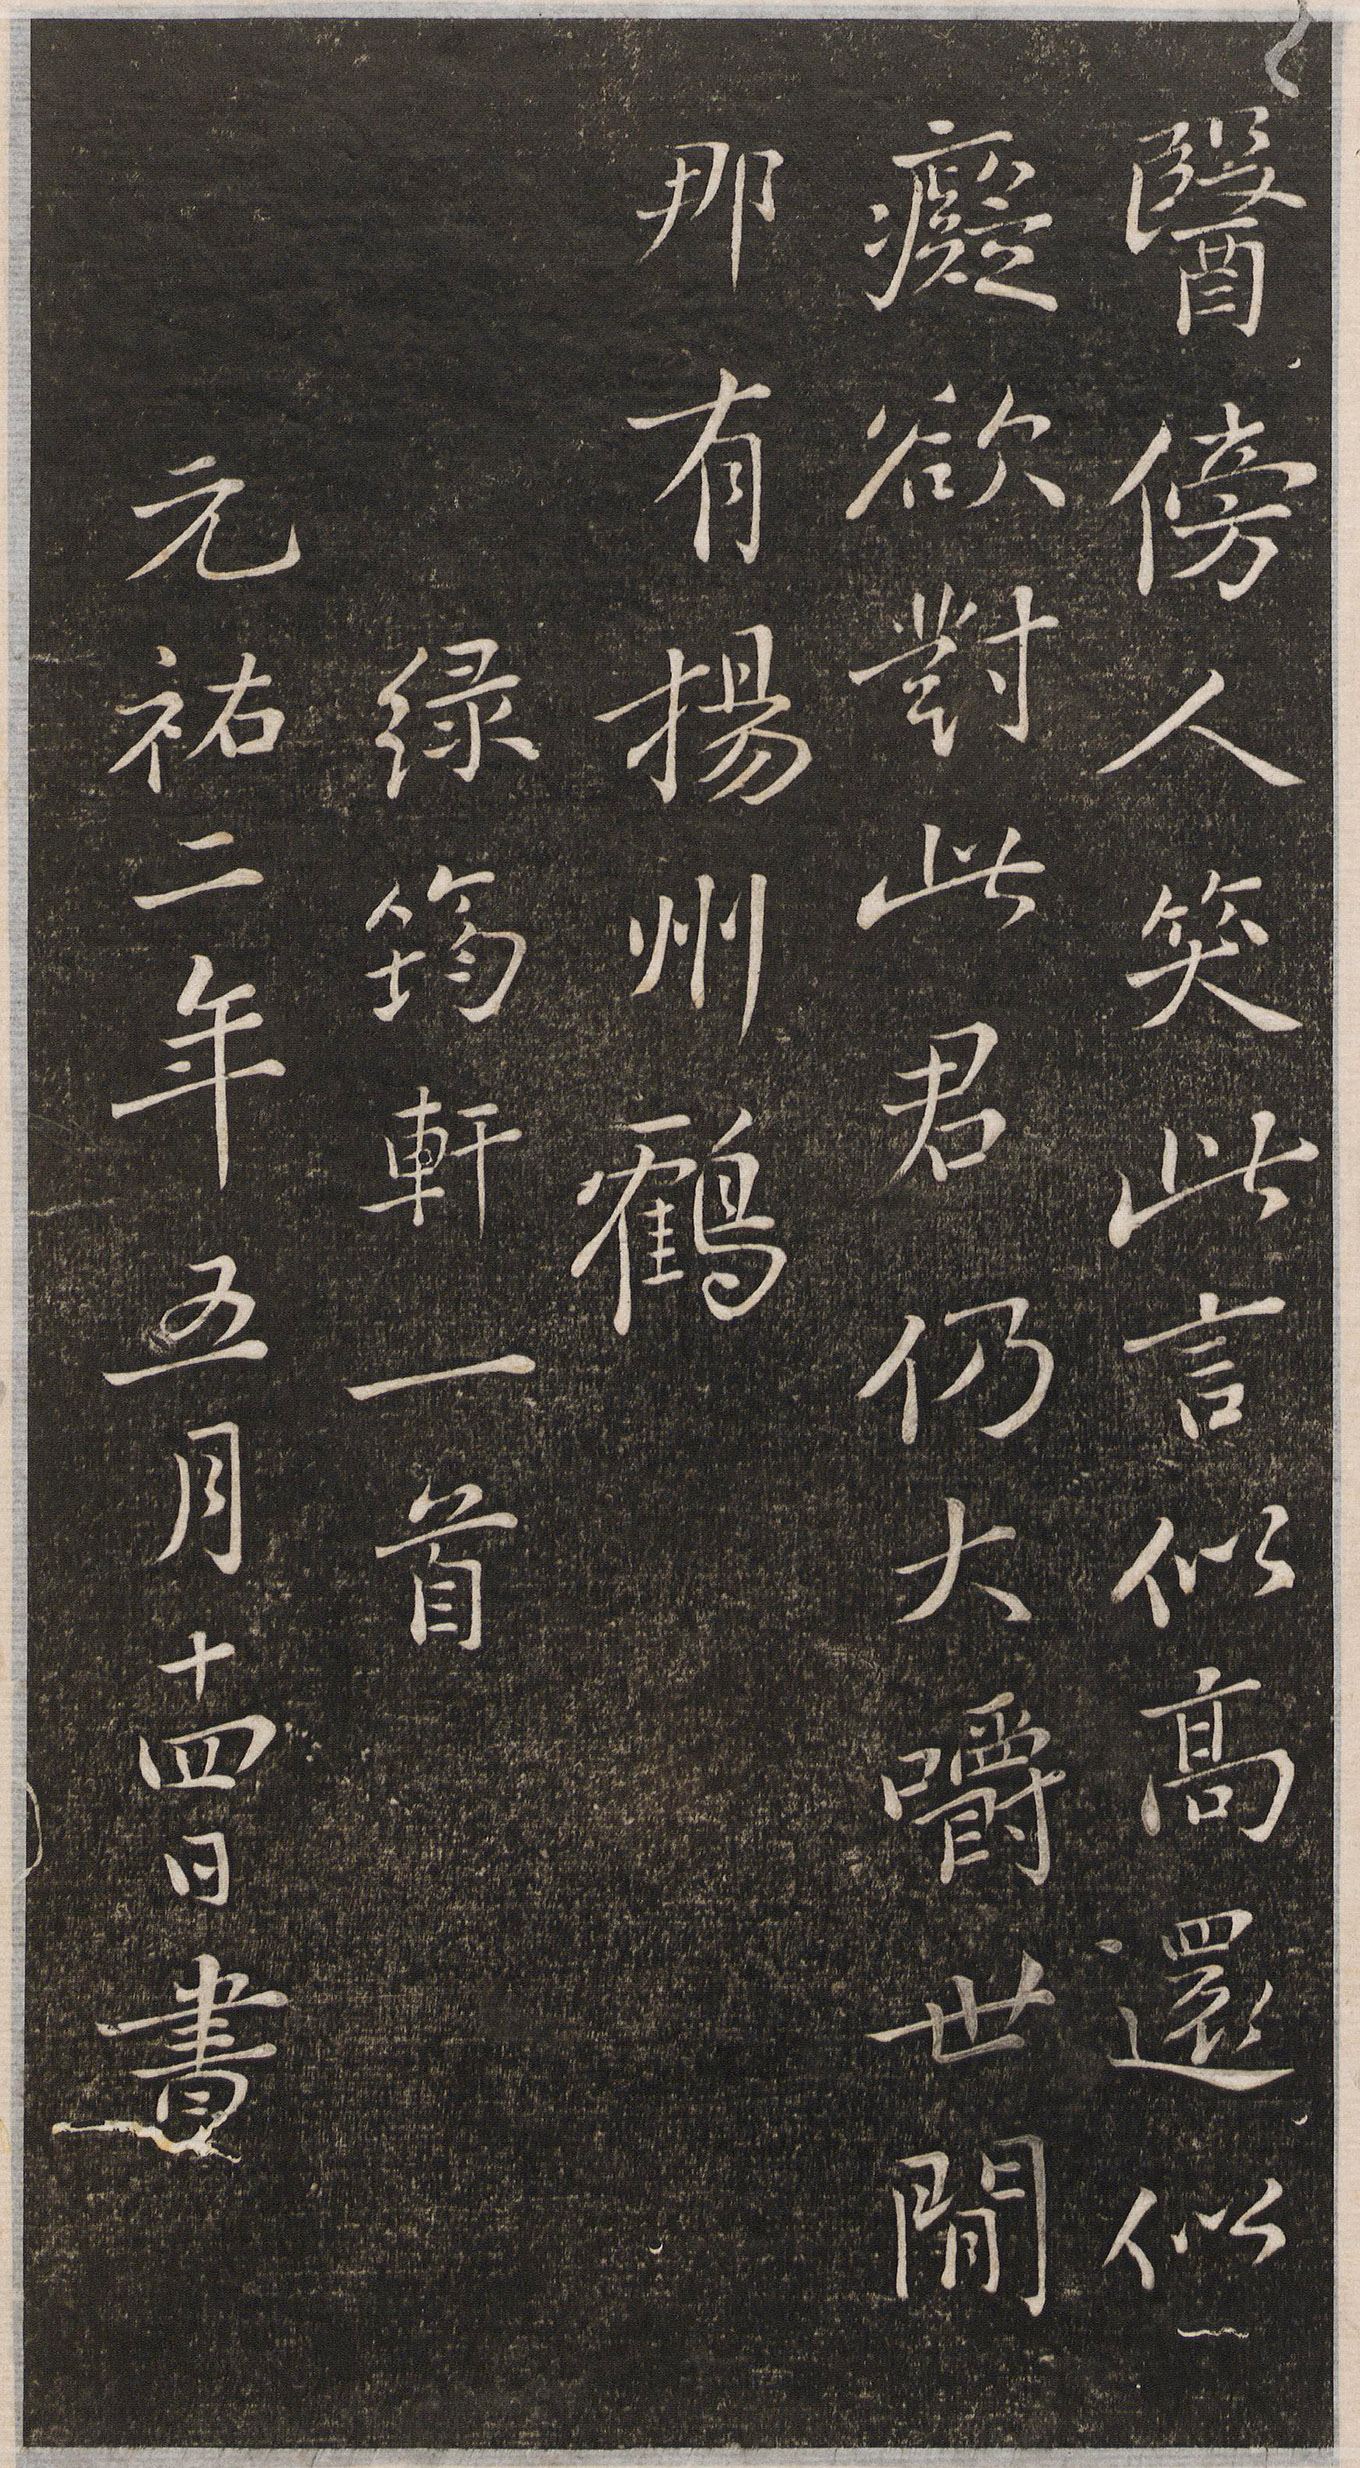 醫傍人笑此言似高還似
癡欲對此君仍大嚼世閒
那有揚州鶴
緑筠軒一首
元祐二年五月十四日書